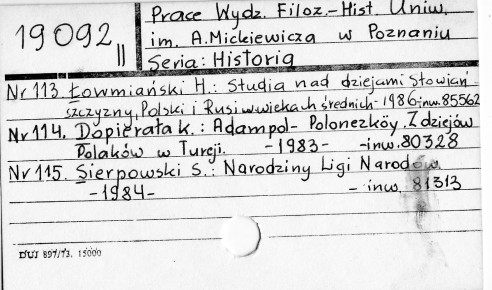 19092 II
Prace Wydz. Filoz.-Hist. Uniw.
im. A. Mickiewicza w Poznaniu
Seria: Historia
Nr 113. Łowmiański H.: Studia nad dziejami Słowiań-
szczyzny, Polski i Rusi w wiekach średnich - 1986 - inw. 85562
Nr 114. Dopierała K.: Adampol - Polonezköy. Z dziejów
Polaków w Turcji. - 1983 - - inw. 80328
Nr 115. Sierpowski S.: Narodziny Ligi Narodów.
- 1984 - - inw. 81313
DUJ 897/73. 15000